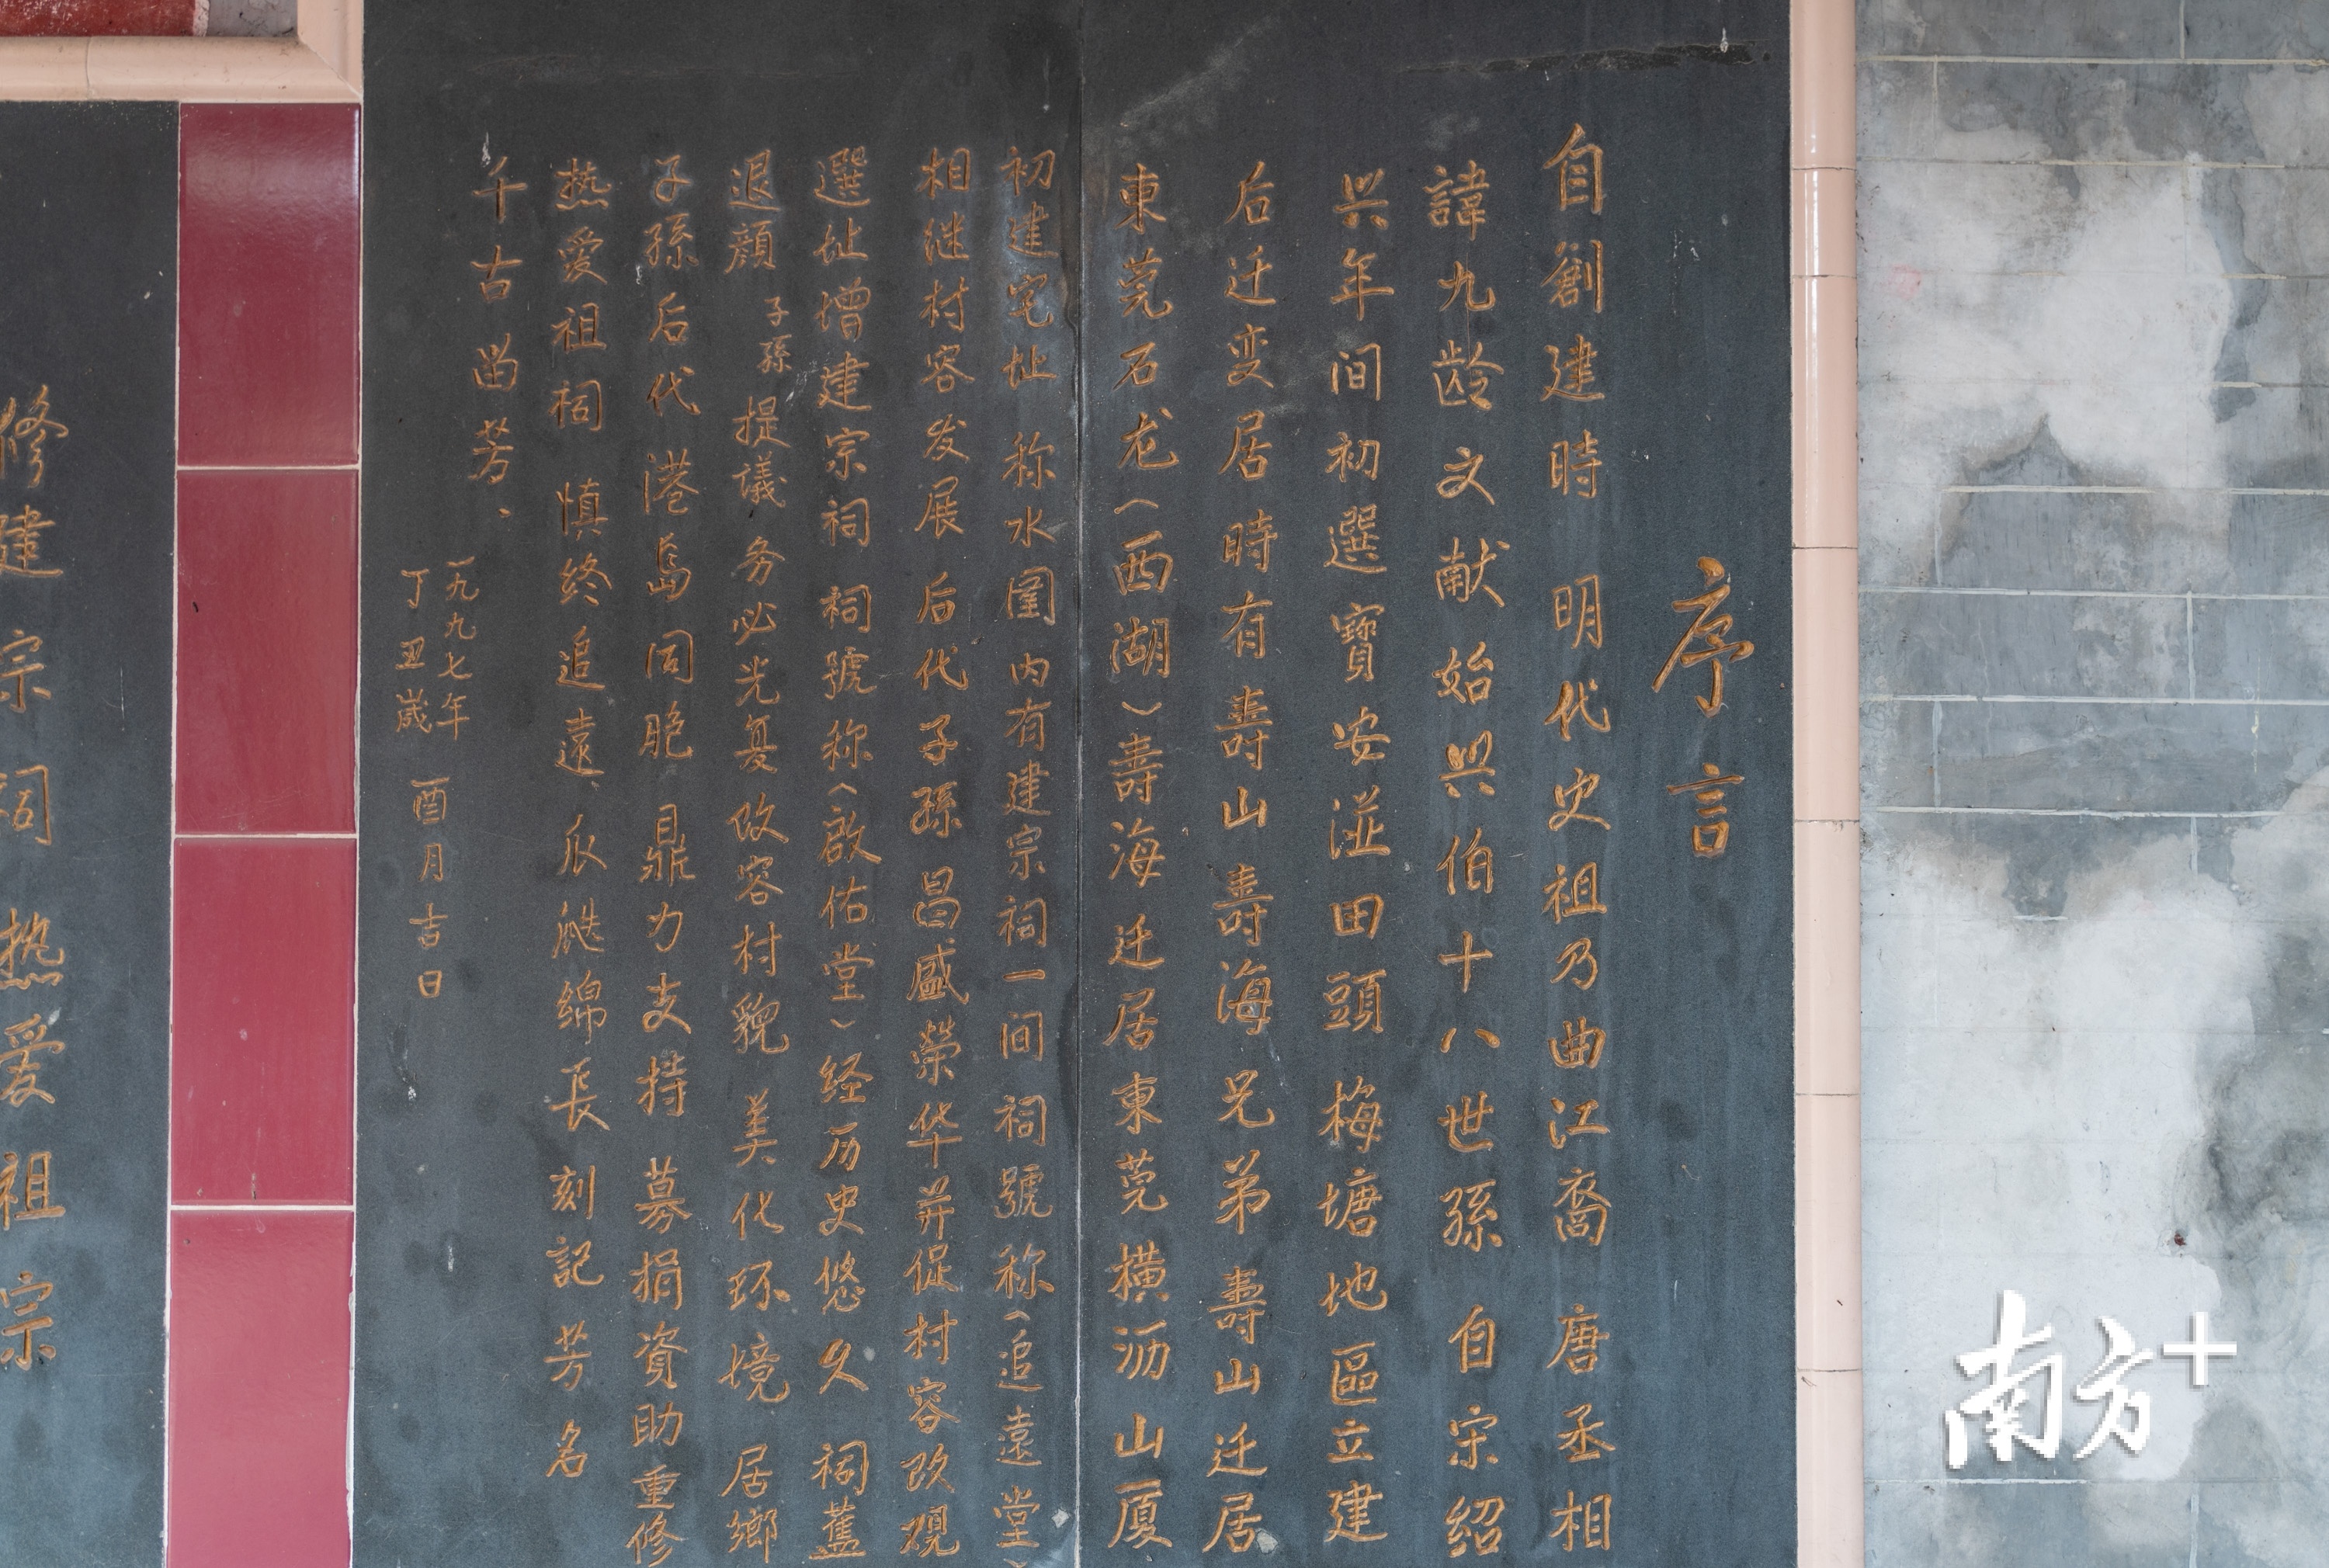 序言
自創建時 明代史祖乃曲江裔 唐丞相
諱九龄文献始兴伯十八世孫 自宋绍
兴年间初選寶安湴田頭 梅塘地區立建
后迁变居時有壽山壽海兄弟 壽山迁居
東莞石龙（西湖）壽海迁居東莞横沥 山厦
初建宅址 称水围内有建宗祠一间祠號称（追遠堂）
相继村容发展 后代子孫昌盛榮华并促村容改观
選址增建宗祠 祠號称（啟佑堂）经历史悠久 祠舊
退顔 子孫 提議务必光复改容村貌 美化环境 居鄉
子孫后代港島同胞 鼎力支持 募捐資助重修
热爱祖祠 慎终追遠 瓜瓞綿長 刻記芳名
千古留芳、
一九九七年
丁丑歲 酉月吉日
修建宗祠热爱祖宗
南方+